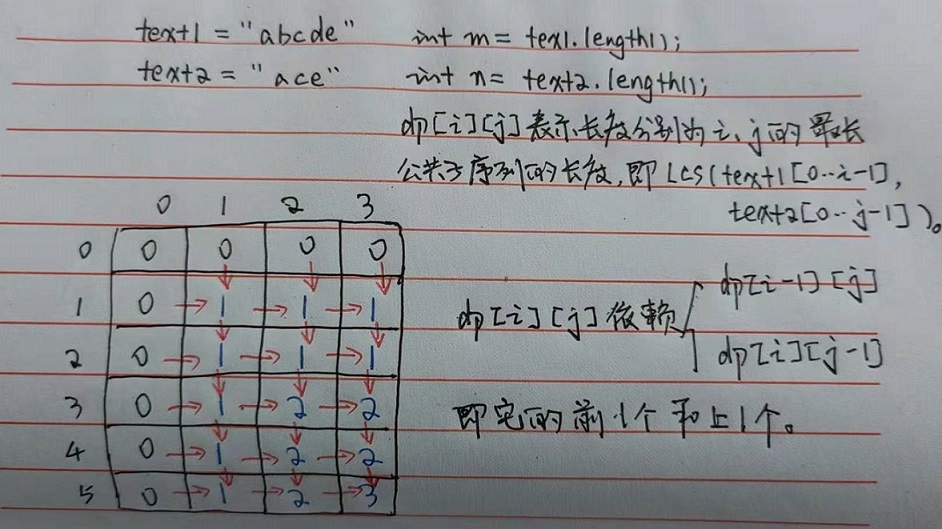 text1 = "abcde" int m = tex1.length();
text2 = "ace" int n = text2.length();
dp[i][j]表示长度分别为i、j的最长
公共子序列的长度,即LCS(text1[0..i-1],
text2[0..j-1])。
0 1 2 3
0 0 0 0 0
1 0 → 1 → 1 → 1
2 0 → 1 → 1 → 1
3 0 → 1 → 2 → 2
4 0 → 1 → 2 → 2
5 0 → 1 → 2 → 3
dp[i-1][j]
dp[i][j]依赖
dp[i][j-1]
即它的前1个和上1个。